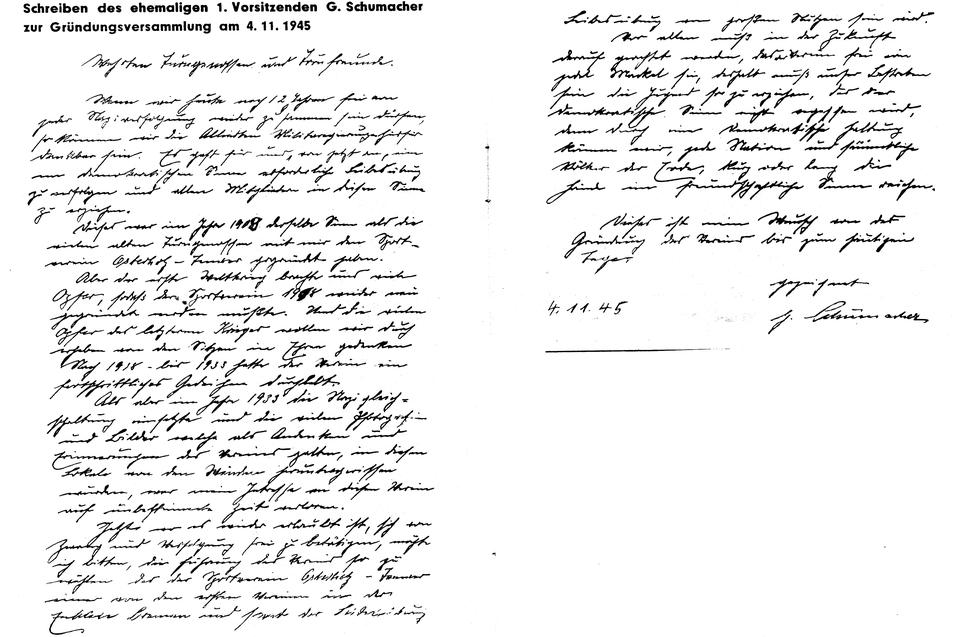 Schreiben des ehemaligen 1. Vorsitzenden G. Schumacher
zur Gründungsversammlung am 4. 11. 1945
Werten Turngenossen und Turnfreunde.
Wenn wir heute nach 12 Jahren frei von
jeder Naziverfolgung wieder zusammen sein dürfen,
so können wir die Alliierten Militärregierung hierfür
dankbar sein. Es geht für uns, von jetzt an, im
demokratischen Sinne Leibesübung
zu verfolgen und allen Mitgliedern in diesem Sinne
zu erziehen.
Dieses war im Jahr 1908 derselbe Sinn als die
vielen alten Turngenossen mit mir den Sport-
verein Osterholz-Tenever gegründet haben.
Aber der erste Weltkrieg brachte uns viele
Opfer, sodaß der Sportverein 1918 wieder neu
gegründet werden mußte. Und die vielen
Opfer des letzteren Krieges wollen wir durch
erheben von den Sitzen in Ehren gedenken
Nach 1918 - bis 1933 hatte der Verein ein
fortschrittliches Gedeihen durchlebt.
Als aber im Jahr 1933 die Nazi gleich=
schaltung einsetzte und die vielen
und Bilder welche als Andenken und
Erinnerungen des Vereins galten, in diesem
Lokale von den Wänden heruntergerissen
wurden, war mein Interesse an diesem Verein
auf unbestimmte Zeit verloren.
Jetzt wo es wieder erlaubt ist, sich von
Zwang und Verfolgung frei zu betätigen, möchte
ich bitten, die Führung des Vereins so zu
daß der Sportverein Osterholz-Tenever
einer von den ersten Vereinen in der
Bremen und
Leibesübung von großem Nutzen sein wird.
Vor allem muß in der Zukunft
darauf geachtet werden, das Verein frei von
jedem Makel sei, deshalb muß unser Bestreben
sein die Jugend so zu erziehen, daß der
demokratische Sinn nicht wird,
denn durch eine demokratische Haltung
können wir, jede Nation und sämmtliche
Völker der Erde, kurz oder lang die
Hände im freundschaftlichen Sinne reichen.
Dieses ist mein Wunsch von der
Gründung des Vereins bis zum heutigen
Tage.
gezeichnet
4. 11. 45
G. Schumacher